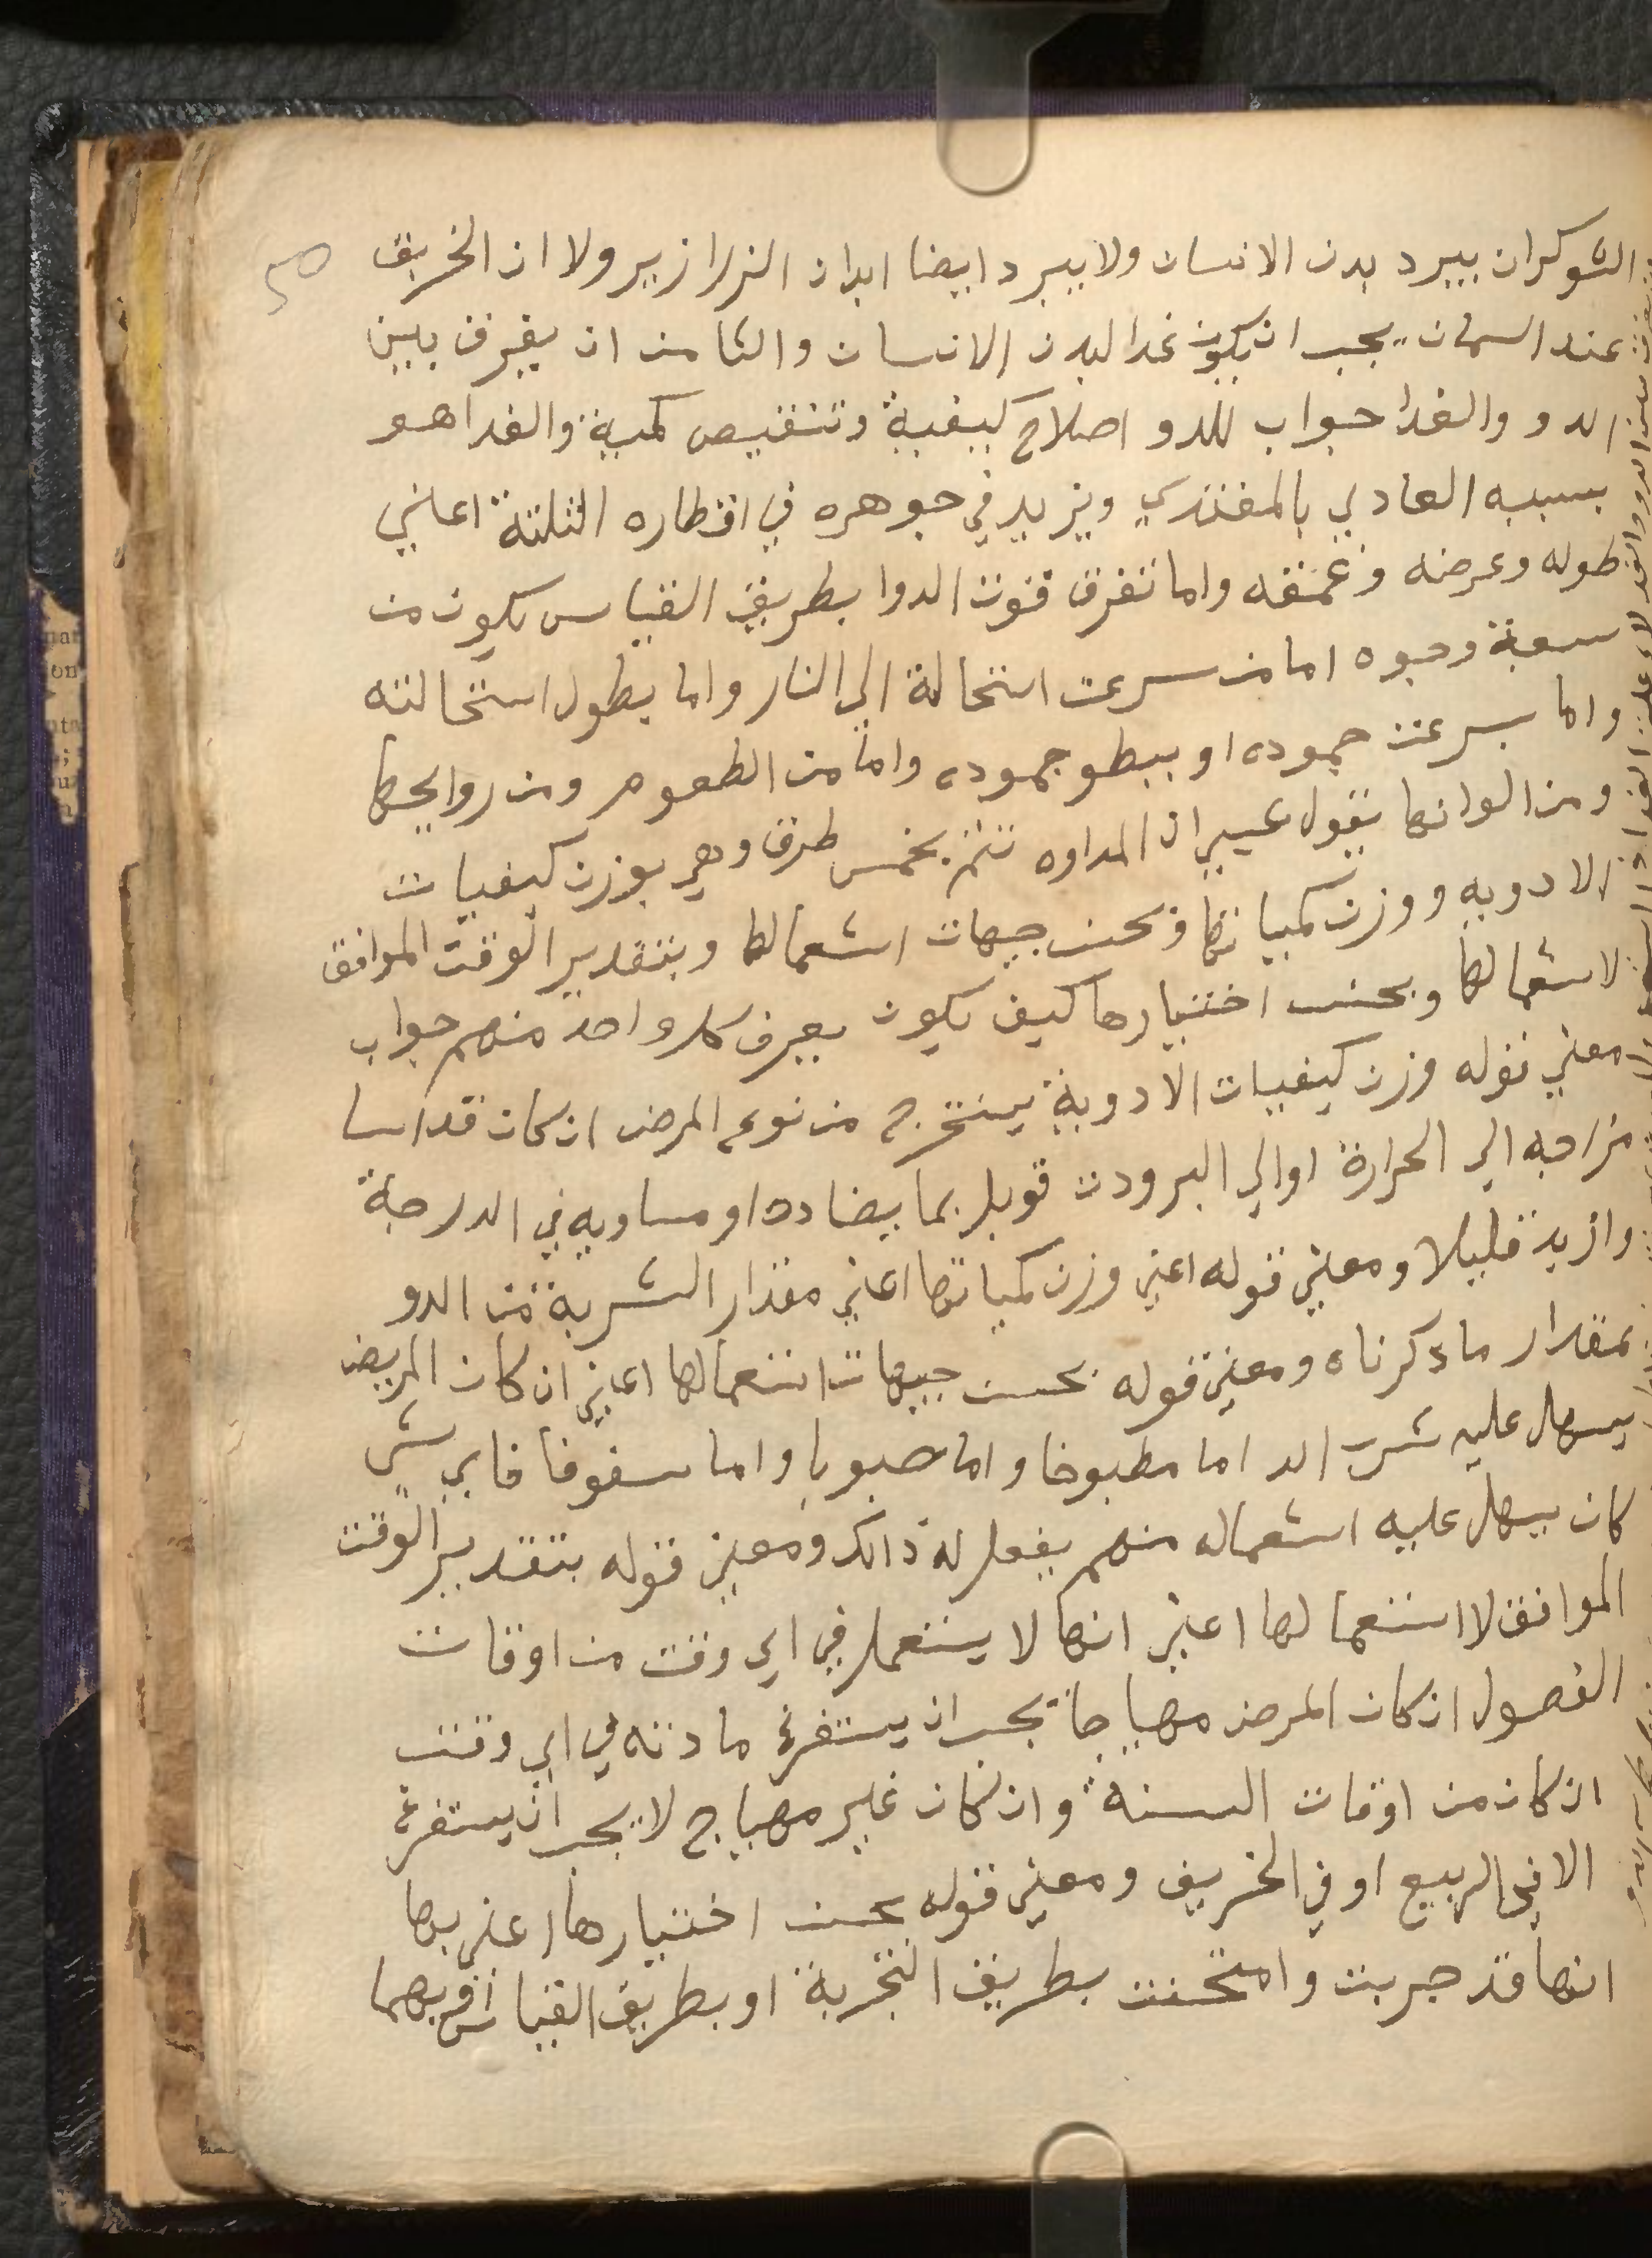 الشوكران يبرد بدن الانسان ولا يبرد ايضا ابدان الزرازير ولا ان الخربق
عند السمان يجب ان يكون غدا لبدن الانسان والثامن ان يفرق بين
الدو والغدا جواب للدو اصلاح كيفية وتنقيص كمية والغدا هو
بسببه العادي بالمغتدي ويزيد في جوهره في اقطاره الثلثة اعني
طوله وعرضه وعمقه واما تفرق قوت الدوا بطريق القياس يكون من
سعبة وجوه اما من سرعت استحالة الي النار واما بطول استحالته
واما بسرعت جموده او ببطو جموده واما من الطعوم ومن روايحها
ومن الوانها يقول عيسي ان المداوه تتم بخمس طرق وهي بوزن كيفيات
الادويه ووزن كمياتها وبحسن جيهات استعمالها وبتقدير الوقت الموافق
لاستعمالها وبحسن اختيارها كيف يكون يعرف كل واحد منهم جواب
معني قوله وزن كيفيات الادوية يستخرج من نوع المرض ان كان قد اسا
مزاجه الي الحرارة او الي البرودت قوبل بما يضادده او مساويه في الدرجة
وازيد قليلا ومعني قوله اعني وزن كمياتها اعني مقدار الشربة من الدو
بمقدار ما دكرناه ومعني قوله بحسن جيهات استعمالها اعني ان كان المريض
يسهل عليه شرب الد اما مطبوخا واما حبوبا واما سفوفا فاي شي
كان يسهل عليه استعماله منهم يفعل له ذالك ومعني قوله بتقدير الوقت
الموافق لا استعمالها اعني انها لا يستعمل في اي وقت من اوقات
الفصول ان كان المرض مهياجا يجب ان يستفرغ مادته في اي وقت
ان كان من اوقات السنة وان كان غير مهياج لا يجب ان يستفرغ
الا في الربيع او في الخريف ومعني قوله بحسن اختيارها اعني بها
انها قد جربت وامتحنت بطريق التجربة او بطريق القياس او بهما